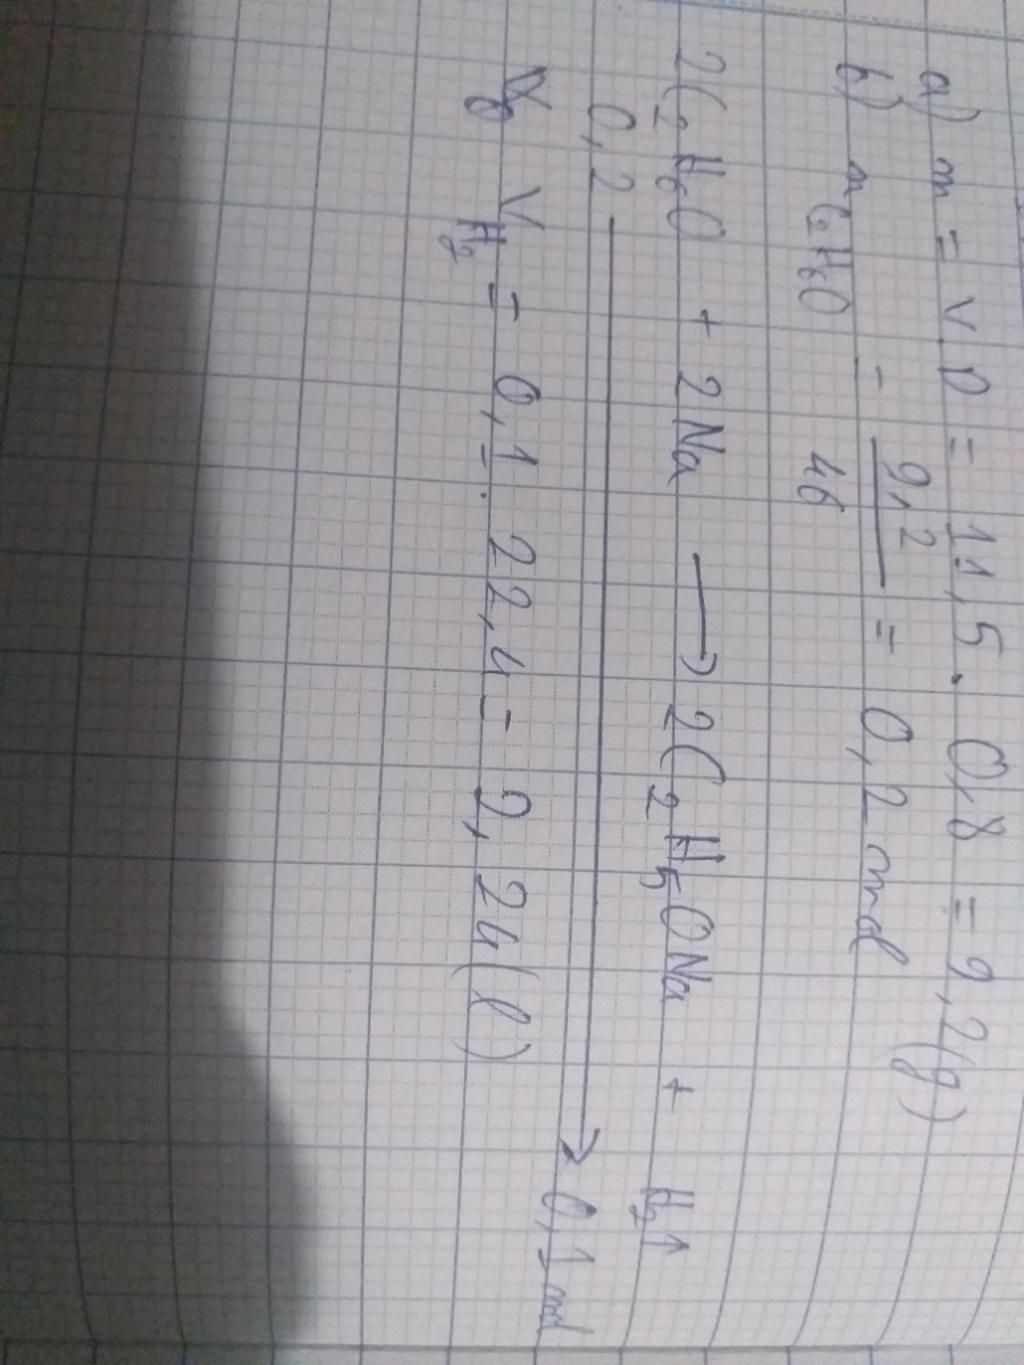 a) m = V.D = 11,5. 0,8 = 9,2(g)
b) n C2H6O = 9,2 / 46 = 0,2 mol
2C2H6O + 2Na → 2C2H5ONa + H2↑
0,2 → 0,1 mol
V H2 = 0,1. 22,4 = 2,24(l)